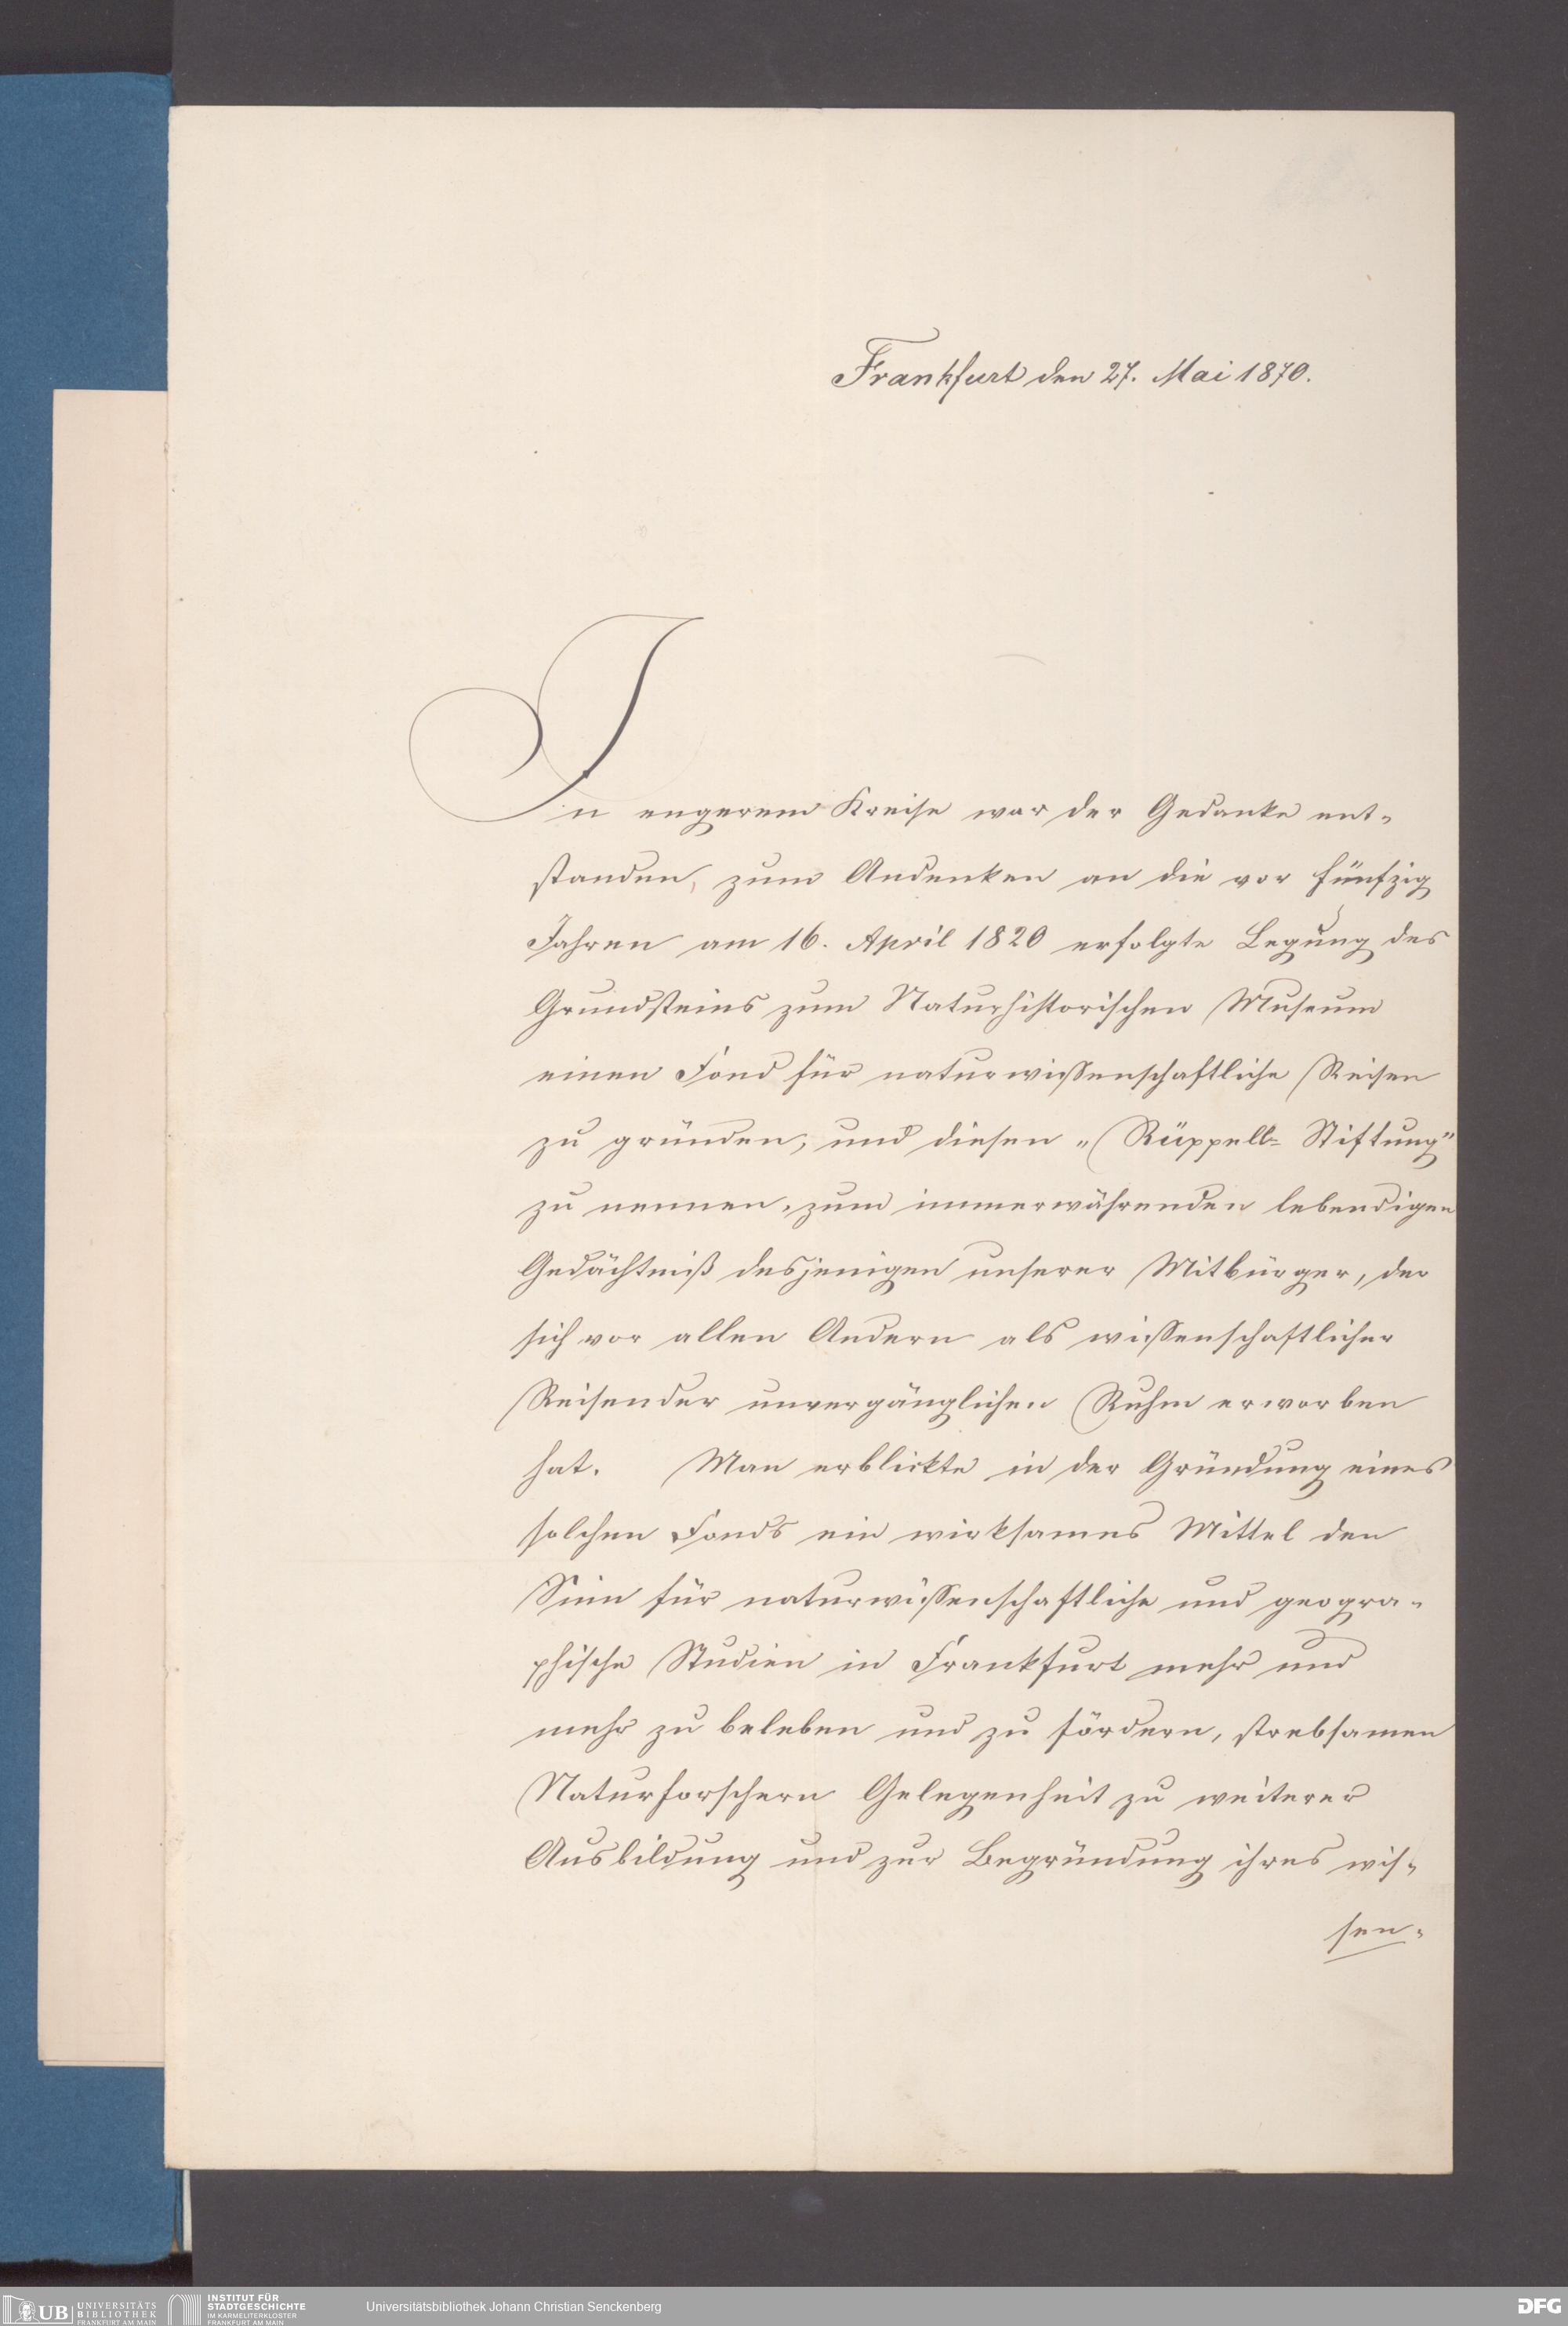 Frankfurt den 27. Mai 1870.
In engerem Kreise war der Gedanke ent-
standen, zum Andenken an die vor fünfzig
Jahren am 16. April 1820 erfolgte Legung des
Grundsteins zum Naturhistorischen Museum
einen Fond für naturwissenschaftliche Reisen
zu gründen, und diesen „Rüppell-Stiftung"
zu nennen, zum immerwährenden lebendigen
Gedächtniß desjenigen unserer Mitbürger, der
sich vor allen Andern als wissenschaftlicher
Reisender unvergänglichen Ruhm erworben
hat. Man erblickte in der Gründung eines
solchen Fonds ein wirksames Mittel den
Sinn für naturwissenschaftliche und geogra-
phische Studien in Frankfurt mehr und
mehr zu beleben und zu fördern, strebsamen
Naturforschern Gelegenheit zu weiterer
Ausbildung und zur Begründung ihres wis-
sen-
UB UNIVERSITÄTS BIBLIOTHEK FRANKFURT AM MAIN
INSTITUT FÜR STADTGESCHICHTE IM KARMELITERKLOSTER FRANKFURT AM MAIN
Universitätsbibliothek Johann Christian Senckenberg
DFG